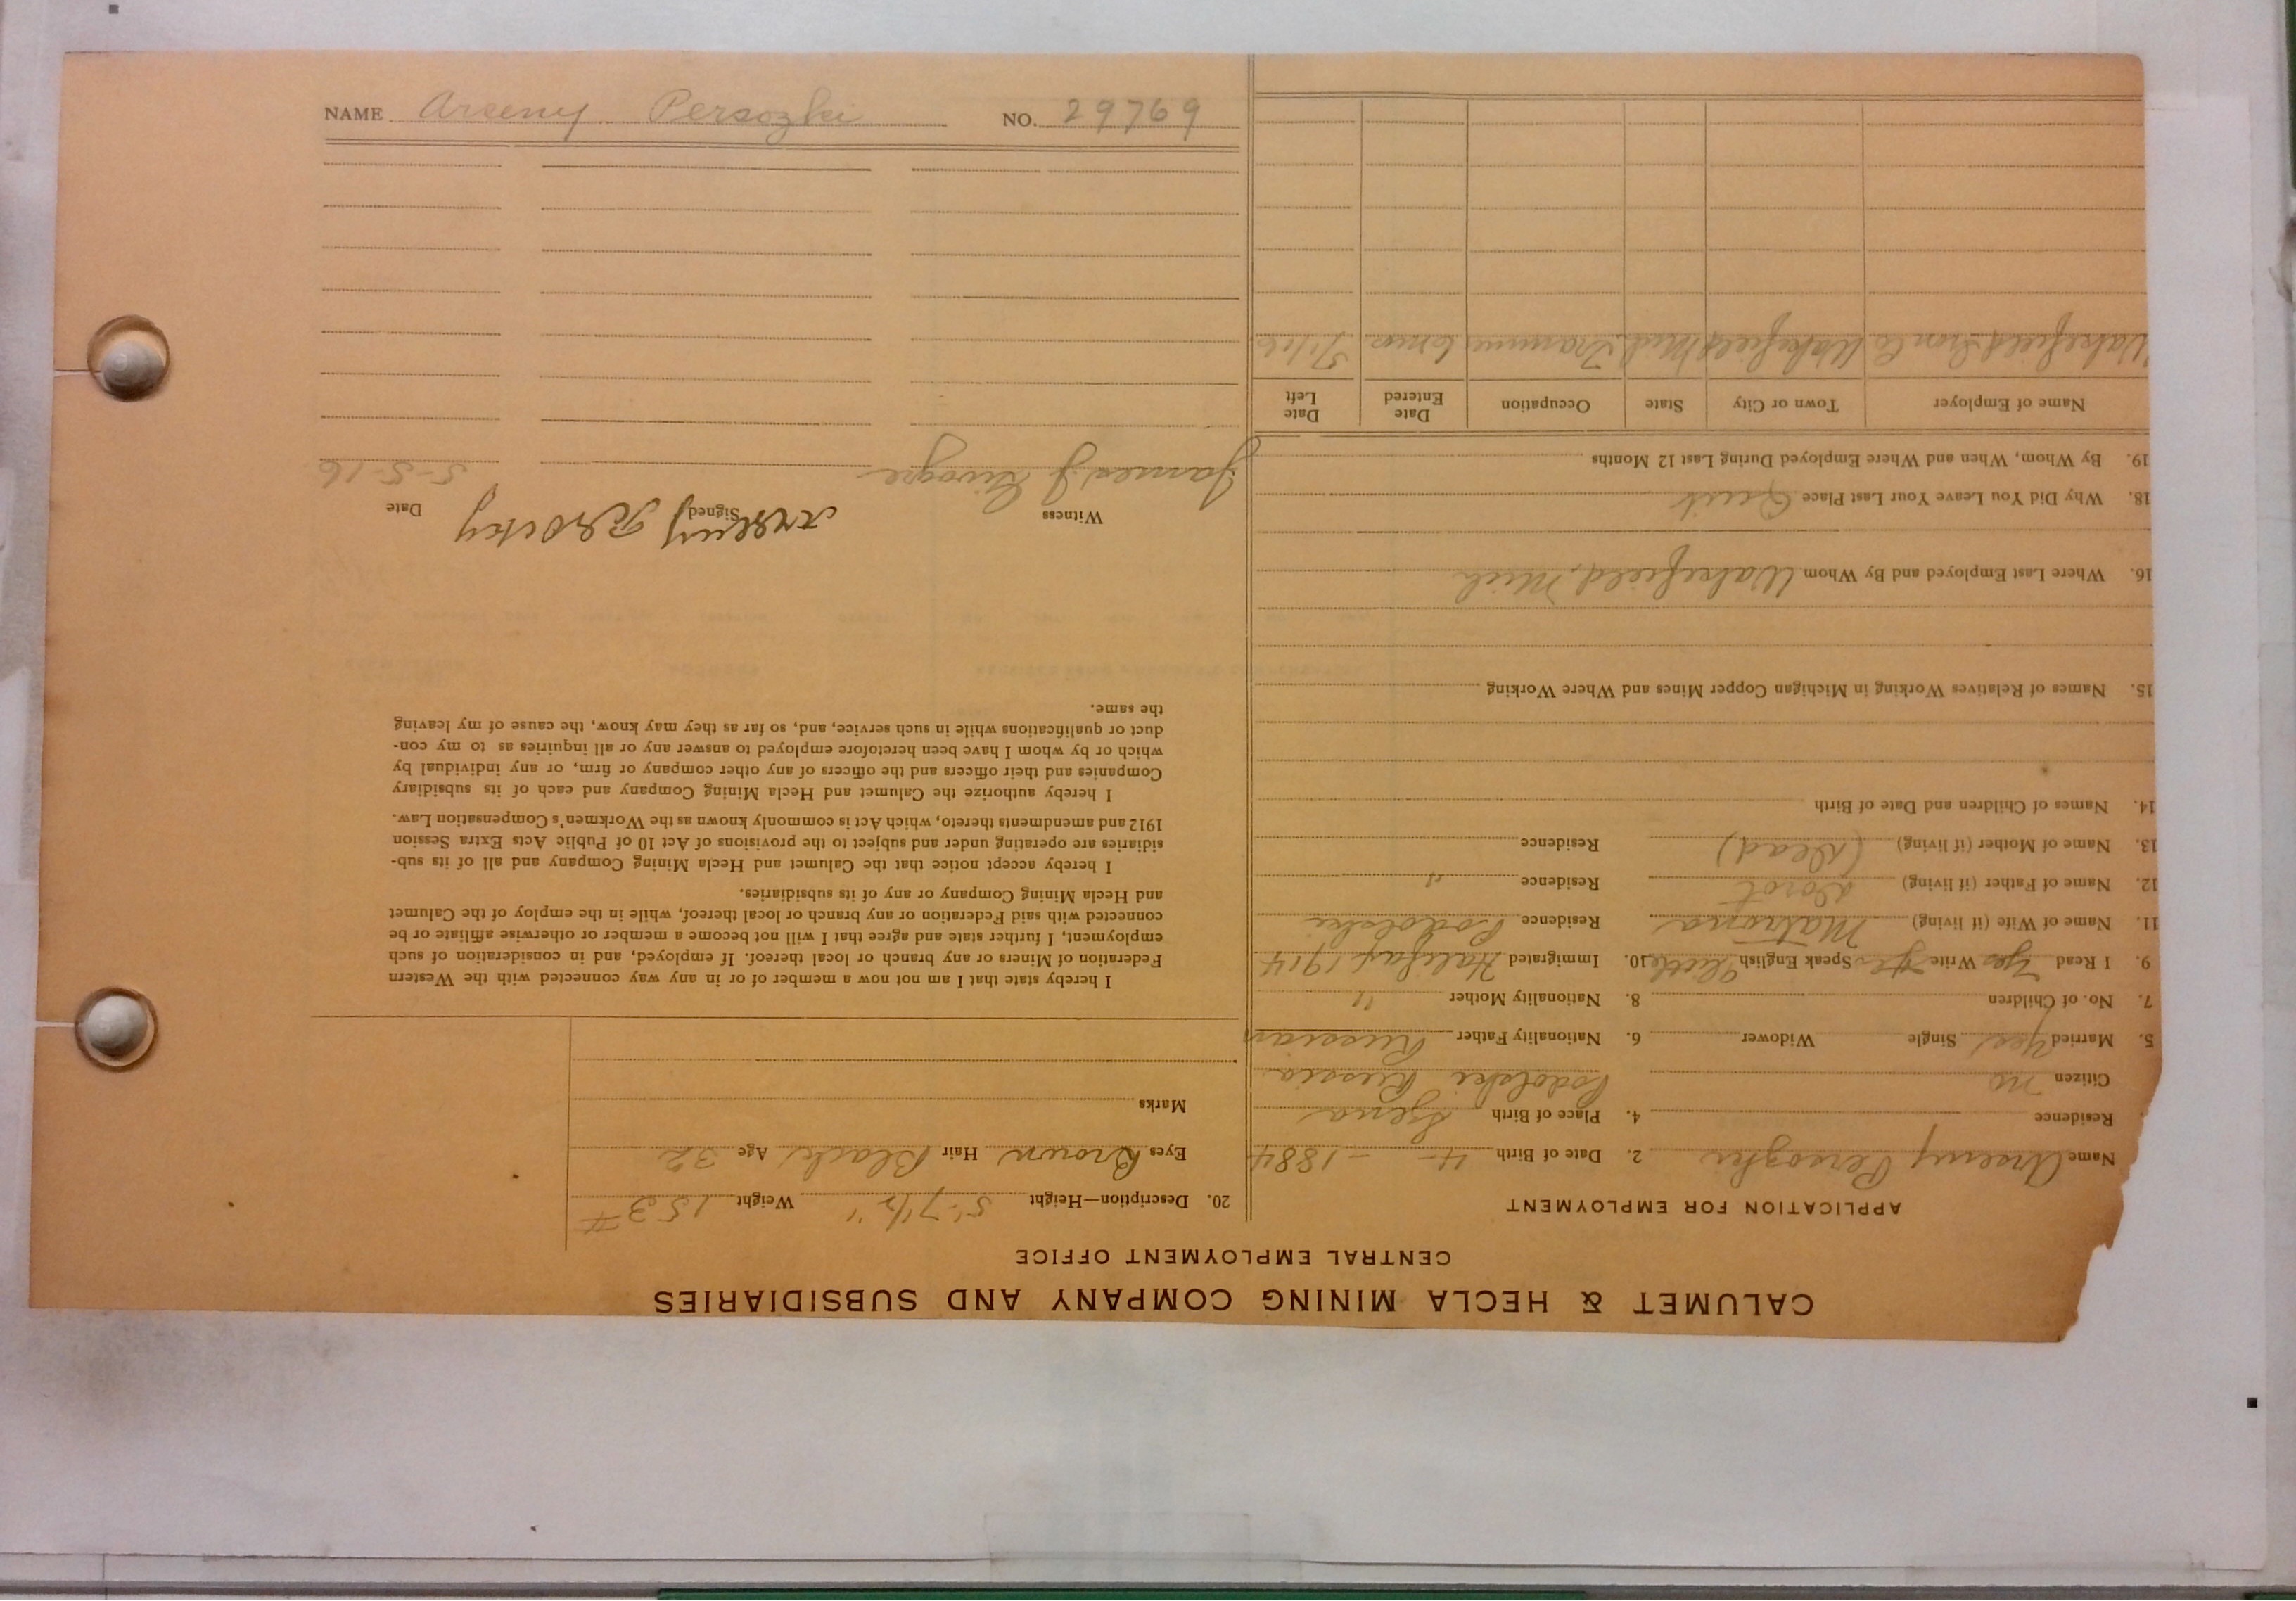 NAME Arceny Persozki NO. 29769
CALUMET & HECLA MINING COMPANY AND SUBSIDIARIES
CENTRAL EMPLOYMENT OFFICE
APPLICATION FOR EMPLOYMENT
Name Arceny Persozki 2. Date of Birth 4 - - 1884
Residence 4. Place of Birth
Citizen no Podolski Russia
5. Married Yes Single Widower 6. Nationality Father Russian
7. No. of Children 8. Nationality Mother "
9. I Read Yes Write Yes Speak English Little 10. Immigrated Halifax 1914
11. Name of Wife (if living) Matrona Residence Podolski
12. Name of Father (if living) Residence "
13. Name of Mother (if living) (Dead) Residence
14. Names of Children and Date of Birth
15. Names of Relatives Working in Michigan Copper Mines and Where Working
16. Where Last Employed and By Whom Wakefield, Mich
18. Why Did You Leave Your Last Place Quit
19. By Whom, When and Where Employed During Last 12 Months
Name of Employer Town or City State Occupation Date Entered Date Left
Wakefield Iron Co Wakefield Mich Trammer 6 mos
20. Description—Height 5'-7 1/2" Weight 153 #
Eyes Brown Hair Black Age 32
Marks
I hereby state that I am not now a member of or in any way connected with the Western
Federation of Miners or any branch or local thereof. If employed, and in consideration of such
employment, I further state and agree that I will not become a member or otherwise affiliate or be
connected with said Federation or any branch or local thereof, while in the employ of the Calumet
and Hecla Mining Company or any of its subsidiaries.
I hereby accept notice that the Calumet and Hecla Mining Company and all of its sub-
sidiaries are operating under and subject to the provisions of Act 10 of Public Acts Extra Session
1912 and amendments thereto, which Act is commonly known as the Workmen's Compensation Law.
I hereby authorize the Calumet and Hecla Mining Company and each of its subsidiary
Companies and their officers and the officers of any other company or firm, or any individual by
which or by whom I have been heretofore employed to answer any or all inquiries as to my con-
duct or qualifications while in such service, and, so far as they may know, the cause of my leaving
the same.
Witness Signed Date
James J 5-5-16